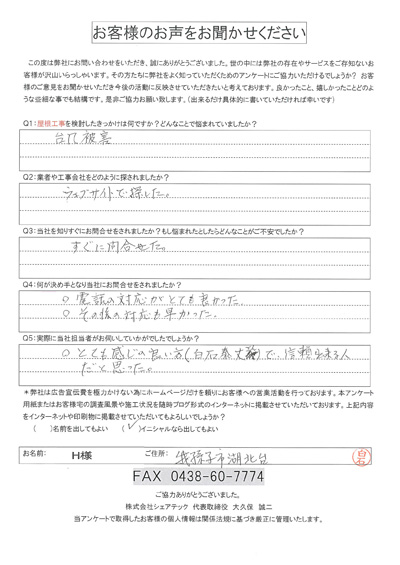 お客様のお声をお聞かせください
この度は弊社にお問い合わせをいただき、誠にありがとうございました。世の中には弊社の存在やサービスをご存知ないお
客様が沢山いらっしゃいます。その方たちに弊社をよく知っていただくためのアンケートにご協力いただけるでしょうか？ お客
様のご意見をお聞かせいただき今後の活動に反映させていただきたいと考えております。良かったこと、嬉しかったことどのよ
うな些細な事でも結構です。是非ご協力お願い致します。（出来るだけ具体的に書いていただければ幸いです）
Q1：屋根工事を検討したきっかけは何ですか？どんなことで悩まれていましたか？
台風被害
Q2：業者や工事会社をどのように探されましたか？
ウェブサイトで探した。
Q3：当社を知りすぐにお問合せをされましたか？もし悩まれたとしたらどんなことがご不安でしたか？
すぐに問合せた。
Q4：何が決め手となり当社にお問合せをされましたか？
○ 電話の対応がとても良かった。
○ その後の対応も早かった。
Q5：実際に当社担当者がお伺いしていかがでしたでしょうか？
○ とても感じの良い方(白石泰丈)で、信頼出来る人
だと思った。
＊弊社は広告宣伝費を極力かけない為にホームページだけを頼りにお客様への営業活動を行っております。本アンケート
用紙またはお客様宅の調査風景や施工状況を随時ブログ形式のインターネットに掲載させていただいております。上記内容
をインターネットや印刷物に掲載させていただいてもよろしいでしょうか？
（　）名前を出してもよい　（✓）イニシャルなら出してもよい
お名前： H様 ご住所： 我孫子市湖北台 白石
FAX 0438-60-7774
ご協力ありがとうございました。
株式会社シェアテック 代表取締役 大久保 誠二
当アンケートで取得したお客様の個人情報は関係法規に基づき厳正に管理いたします。